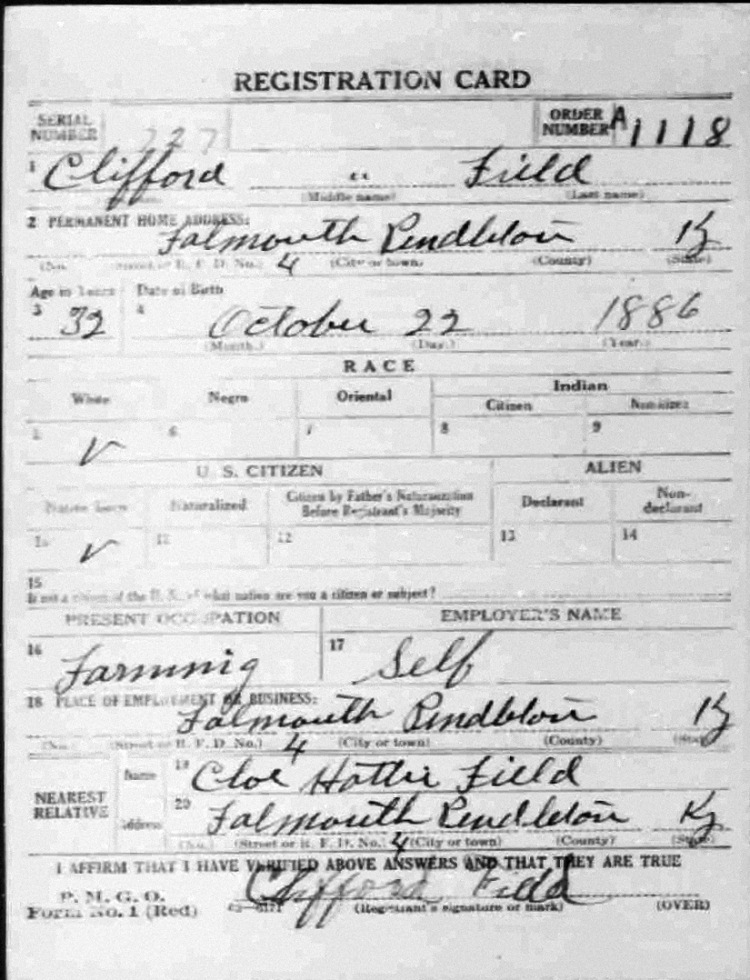 REGISTRATION CARD
SERIAL NUMBER 227 ORDER NUMBER A1118
1 Clifford Field
(Middle name) (Last name)
2 PERMANENT HOME ADDRESS:
Falmouth Pendleton Ky
(No.) (Street or R. F. D. No.) 4 (City or town) (County) (State)
Age in Years Date of Birth
3 32 4 October 22 1886
(Month.) (Day.) (Year.)
RACE
White Negro Oriental Indian
Citizen Noncitizen
5 ✓ 6 7 8 9
U. S. CITIZEN ALIEN
Native born Naturalized Citizen by Father's Naturalization Before Registrant's Majority Declarant Non-declarant
10 ✓ 11 12 13 14
15
If not a citizen of the U. S., of what nation are you a citizen or subject?
PRESENT OCCUPATION EMPLOYER'S NAME
16 Farmnig 17 Self
18 PLACE OF EMPLOYMENT OR BUSINESS:
Falmouth Pendleton Ky
(No.) (Street or R. F. D. No.) 4 (City or town) (County) (State)
NEAREST RELATIVE
Name 19 Cloe Hattie Field
Address 20 Falmouth Pendleton Ky
(No.) (Street or R. F. D. No.) 4 (City or town) (County) (State)
I AFFIRM THAT I HAVE VERIFIED ABOVE ANSWERS AND THAT THEY ARE TRUE
P. M. G. O.
Form No. 1 (Red) Clifford Field
(Registrant's signature or mark) (OVER)